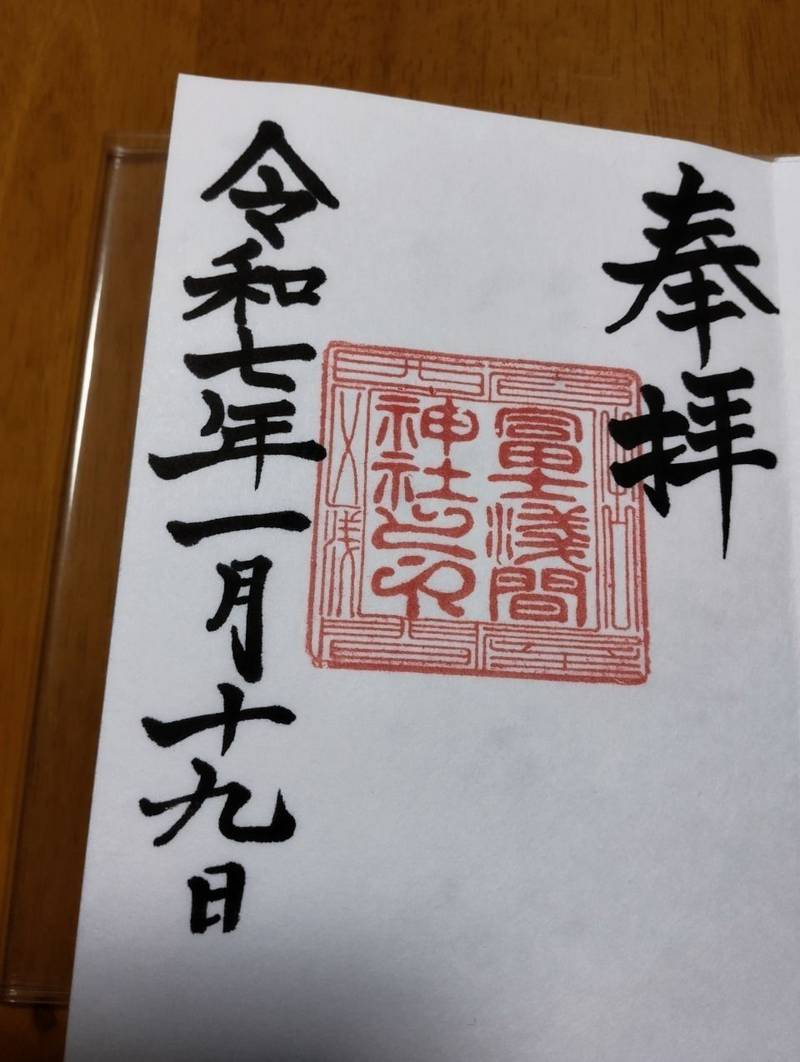 奉拝
富士浅間
神社之印
令和七年一月十九日